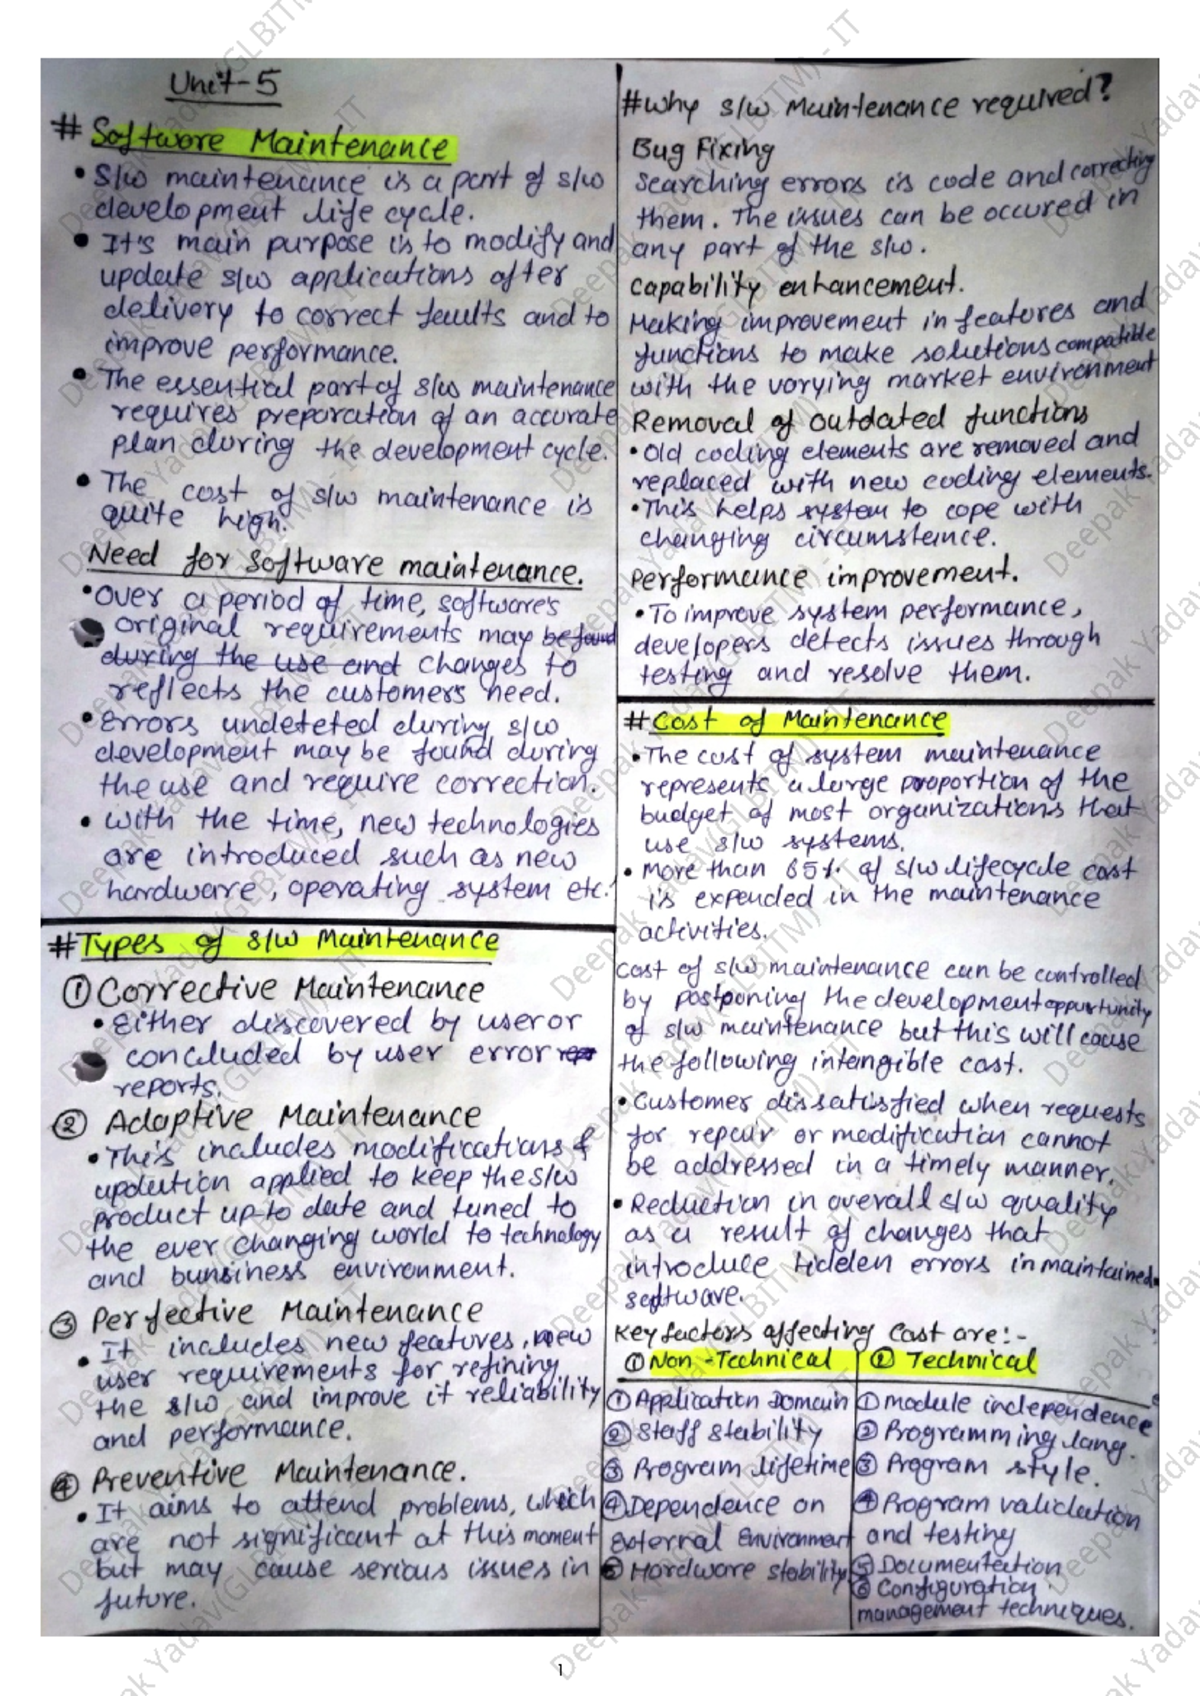 Unit-5
# Software Maintenance
• S/w maintenance is a part of s/w
development life cycle.
• It's main purpose is to modify and
update s/w applications after
delivery to correct faults and to
improve performance.
• The essential part of s/w maintenance
requires preparation of an accurate
plan during the development cycle.
• The cost of s/w maintenance is
quite high.
Need for Software maintenance.
• Over a period of time, software's
original requirements may be found
during the use and changes to
reflects the customers need.
• Errors undeteted during s/w
development may be found during
the use and require correction.
• with the time, new technologies
are introduced such as new
hardware, operating system etc.
# Types of s/w Maintenance
① Corrective Maintenance
• Either discovered by user or
concluded by user error
reports.
② Adaptive Maintenance
• This includes modifications &
updation applied to keep the s/w
product up-to date and tuned to
the ever changing world to technology
and bunsiness environment.
③ Perfective Maintenance
• It includes new features, new
user requirements for refining
the s/w and improve it reliability
and performance.
④ Preventive Maintenance.
• It aims to attend problems, which
are not significant at this moment
but may cause serious issues in
future.
# Why s/w Maintenance required?
Bug Fixing
Searching errors is code and correcting
them. The issues can be occured in
any part of the s/w.
Capability enhancement.
Making improvement in features and
functions to make solutions compatible
with the varying market environment
Removal of outdated functions
• Old coding elements are removed and
replaced with new coding elements.
• This helps system to cope with
changing circumstance.
Performance improvement.
• To improve system performance,
developers detects issues through
testing and resolve them.
# Cost of Maintenance
• The cost of system maintenance
represents a large proportion of the
budget of most organizations that
use s/w systems.
• More than 85% of s/w lifecycle cost
is expended in the maintenance
activities.
Cost of s/w maintenance can be controlled
by postponing the development oppurtunity
of s/w maintenance but this will cause
the following intengible cost.
• Customer dissatisfied when requests
for repair or modification cannot
be addressed in a timely manner.
• Reduction in overall s/w quality
as a result of changes that
introduce hidden errors in maintained
software.
Key factors affecting Cost are:-
① Non-Technical ② Technical
① Application Domain ① module independence
② Staff stability ② Programming lang.
③ Program lifetime ③ Program style.
④ Dependence on ④ Program validation
External Environment and testing
⑤ Hardware stability ⑤ Documentation
⑥ Configuration
management techniques.
1
Deepak Yadav(GLBITM) - IT